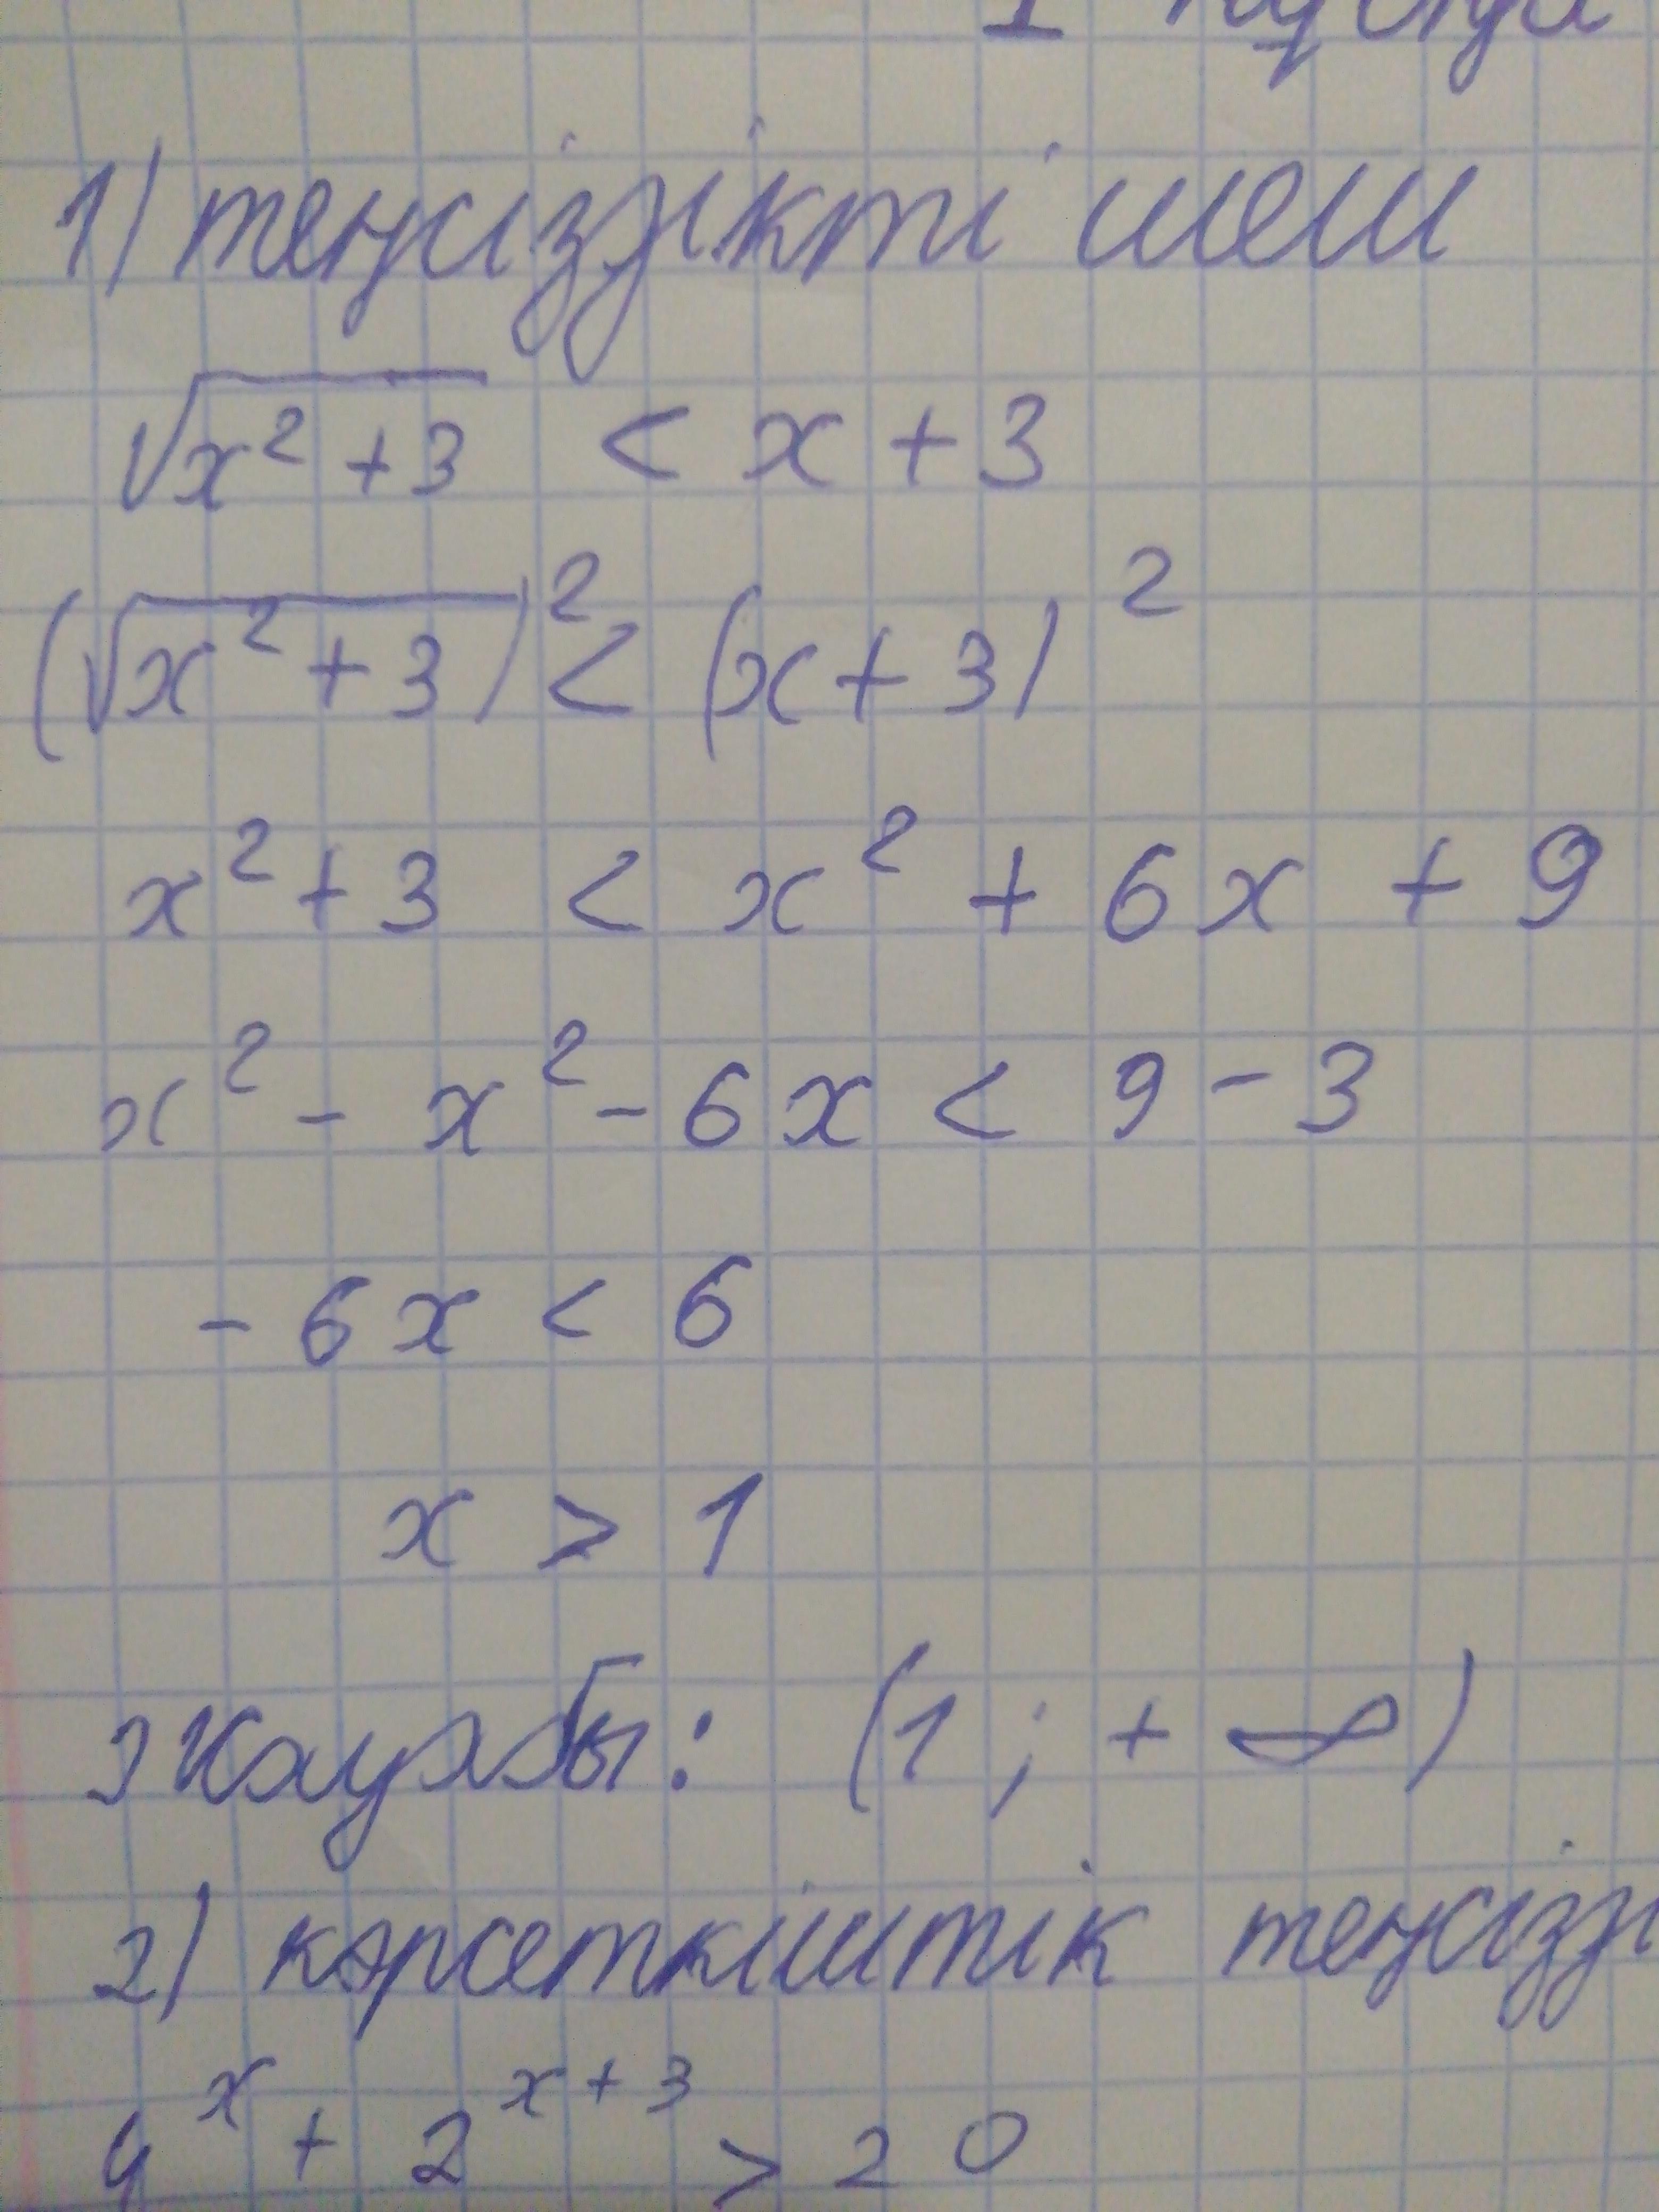 1) теңсіздікті шеш
√(x² + 3) < x + 3
(√(x² + 3))² < (x + 3)²
x² + 3 < x² + 6x + 9
x² - x² - 6x < 9 - 3
- 6x < 6
x > 1
Жауабы: (1; + ∞)
2) көрсеткіштік
4ˣ + 2ˣ⁺³ > 20